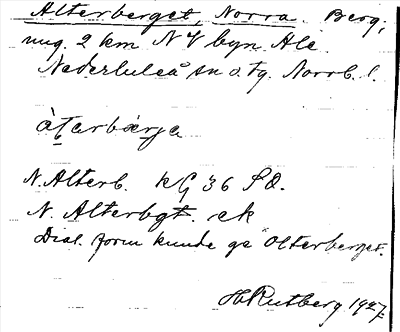 Alterberget, Norra. Berg,
ung. 2 km N V byn Ale.
Nederluleå sn o. tg. Norrb. l.
àtarbærja
N. Alterb. kG 36 SO.
N. Alterbgt. ek
Dial. form kunde ge "Olterberget.
H Rutberg 1927.